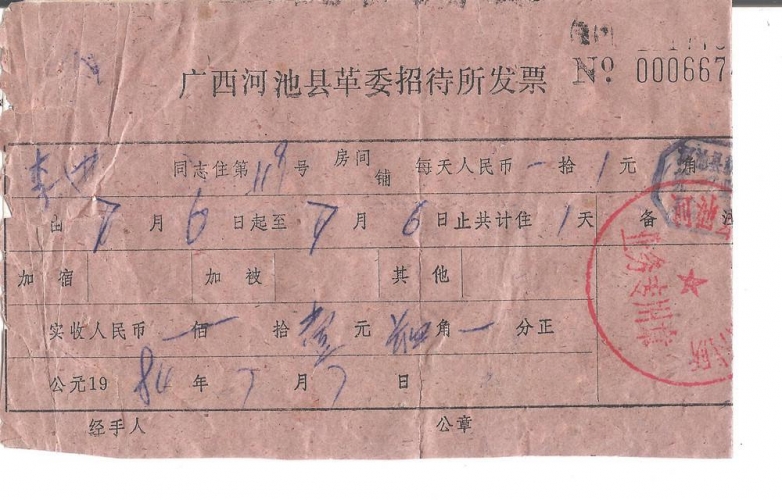 广西河池县革委招待所发票
№ 000667
李 同志住第119号 房间 铺 每天人民币一拾1元 角
由7月6日起至7月6日止共计住1天 备
加宿 加被 其他
实收人民币一佰 拾壹元 角一分正
公元1980年7月7日
经手人 公章
业务专用章